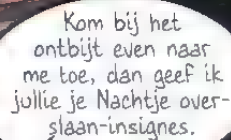 Kom bij het
ontbijt even naar
me toe, dan geef ik
jullie je Nachtje over-
slaan-insignes.